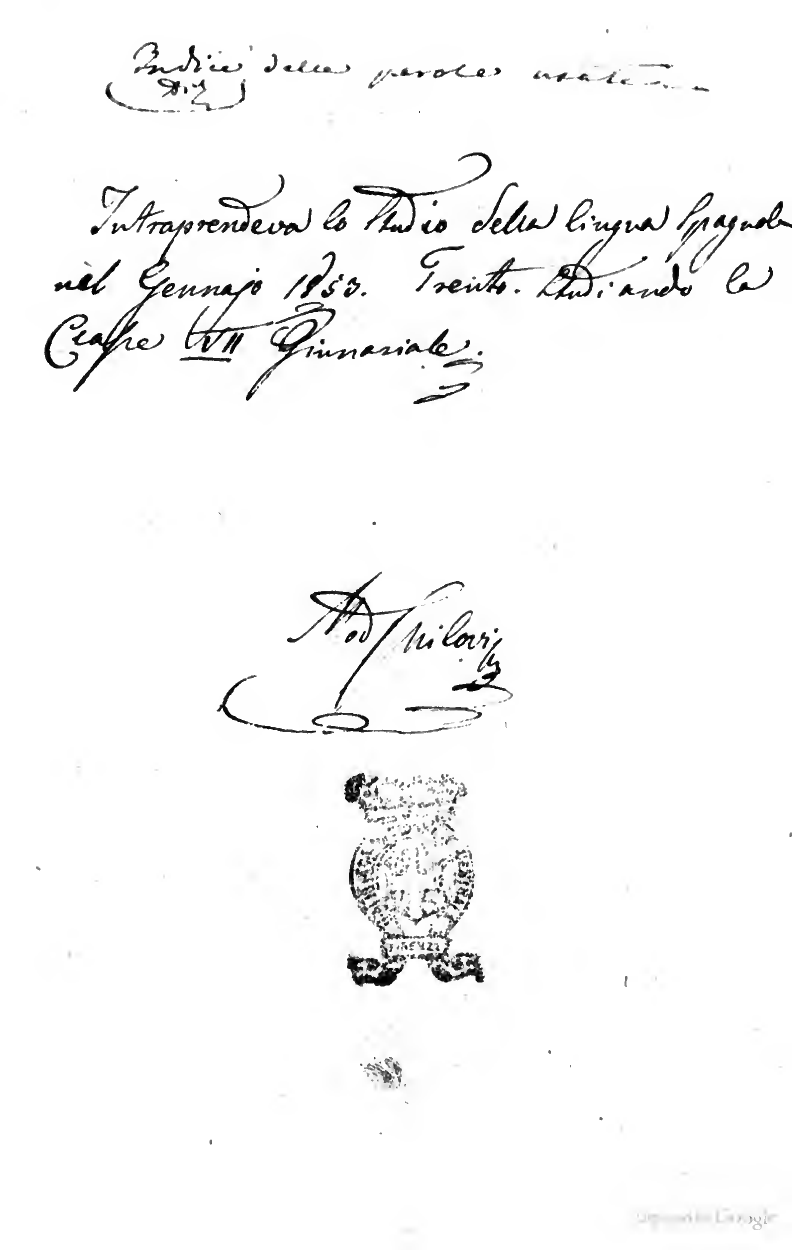 Indice delle parole usate
Intraprendeva lo studio della lingua Spagnola
nel Gennajo 1853. Trento. Studiando la
Classe VII Ginnasiale.
Chilovi
FIRENZE
Google